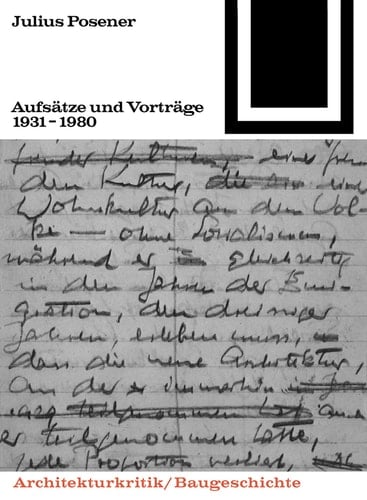 Julius Posener
Aufsätze und Vorträge
1931–1980
einer frem
den Kultur, die eine
Wohnkultur an dem Vol-
ke — ohne Sozialismus,
während er gleichzeitig
in den Jahren der Emi-
gration, den dreissiger
Jahren, erleben muss,
dass die neue Architektur,
an der er immerhin
teilgenommen hat
er teilgenommen hatte,
jede Proportion verliert,
Architekturkritik/Baugeschichte